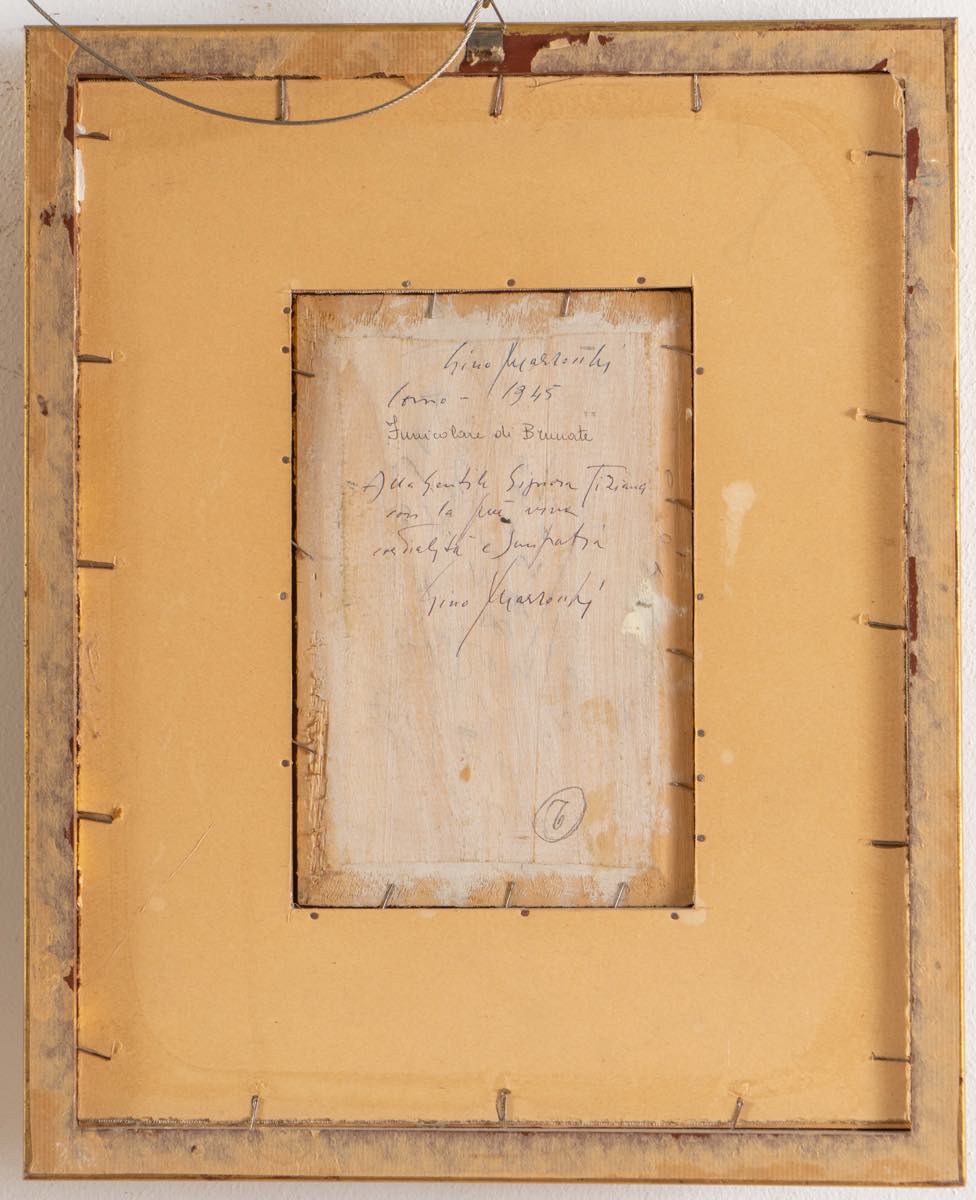 Gino Marzocchi
Como - 1945
Funicolare di Brunate
Alla Gentile Signora Tiziana
con la più viva
cordialità e Simpatia
Gino Marzocchi